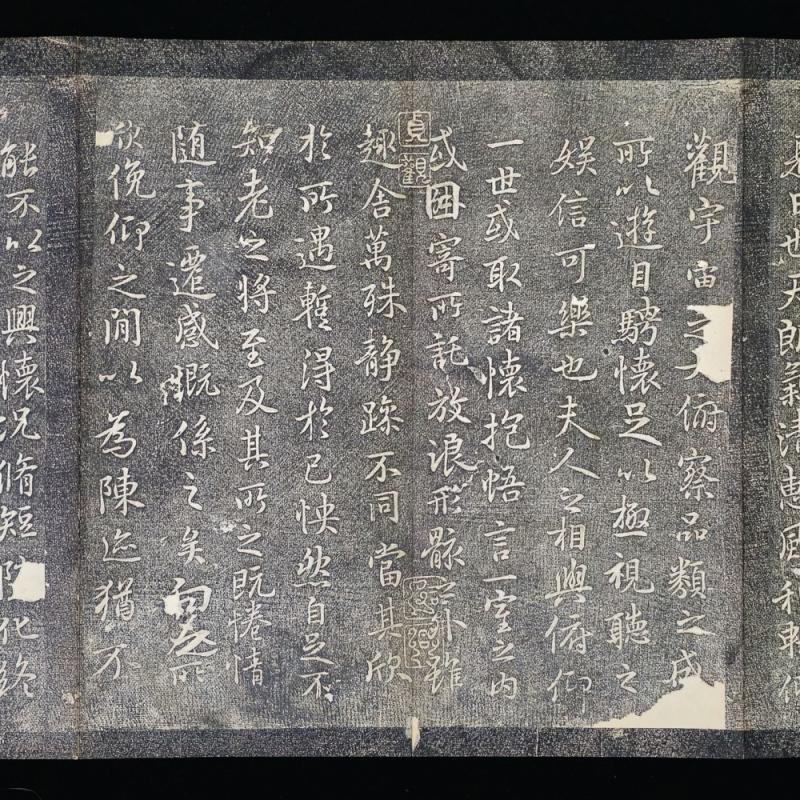 是日也天朗氣清惠風和暢仰
觀宇宙之大俯察品類之盛
所以遊目騁懷足以極視聽之
娛信可樂也夫人之相與俯仰
一世或取諸懷抱悟言一室之內
或因寄所託放浪形骸之外雖
趣舍萬殊静躁不同當其欣
於所遇暫得於己怏然自足不
知老之將至及其所之既惓情
随事遷感慨係之矣向之所
欣俛仰之閒以為陳迹猶不
能不以之興懷況脩短隨化終
貞觀